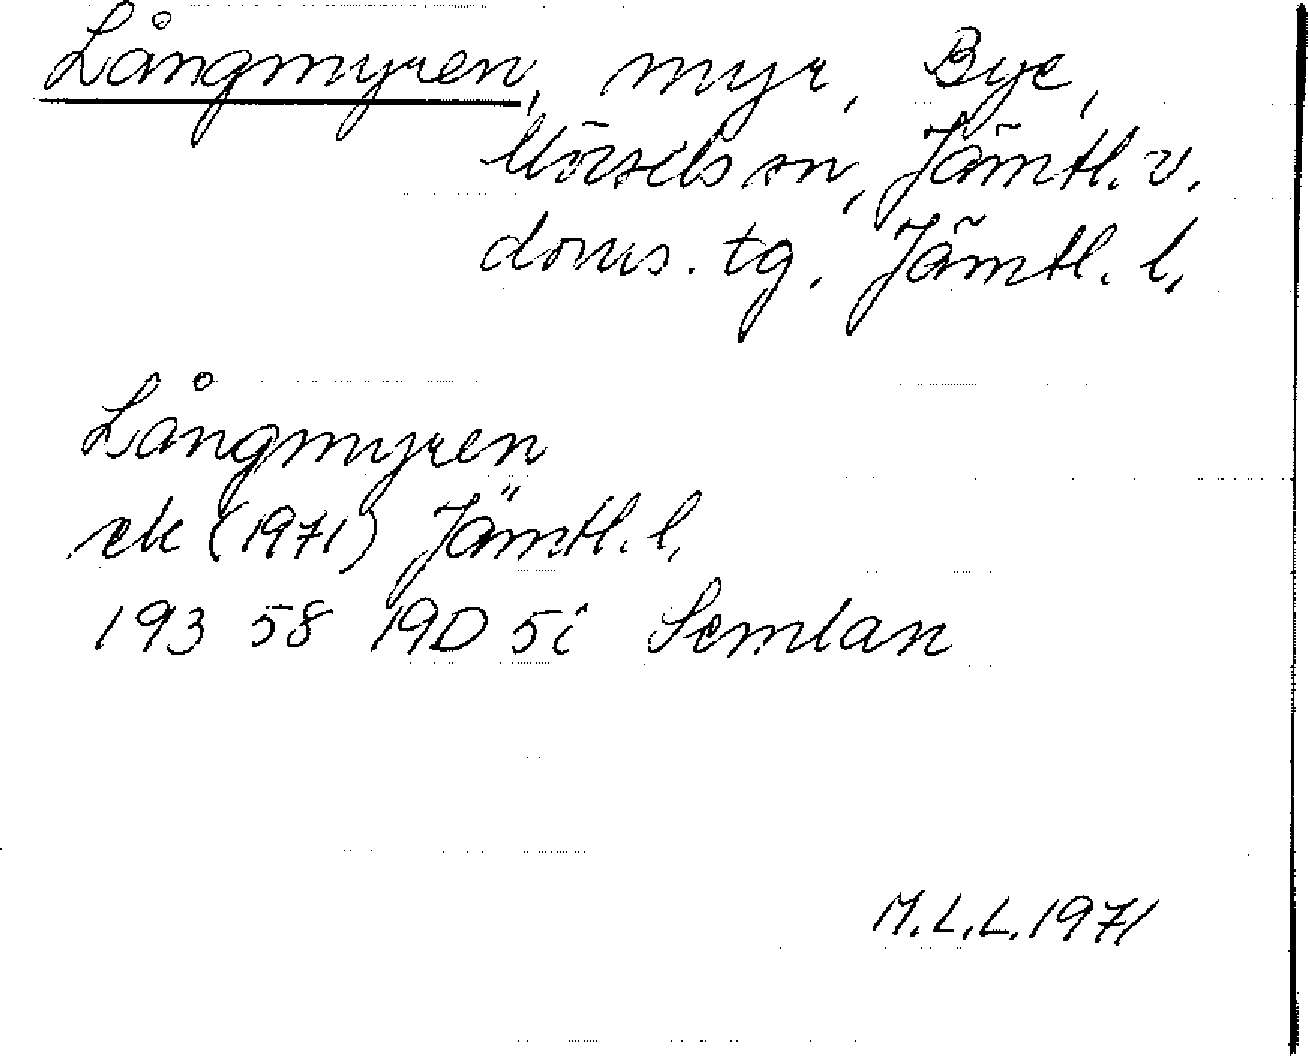 Långmyren, myr, Bye,
Mörsils sn, Jämtl. v.
doms. tg. Jämtl. l.
Långmyren
ek (1971) Jämtl. l.
193 58 19D 5i Semlan
M.L.L. 1971